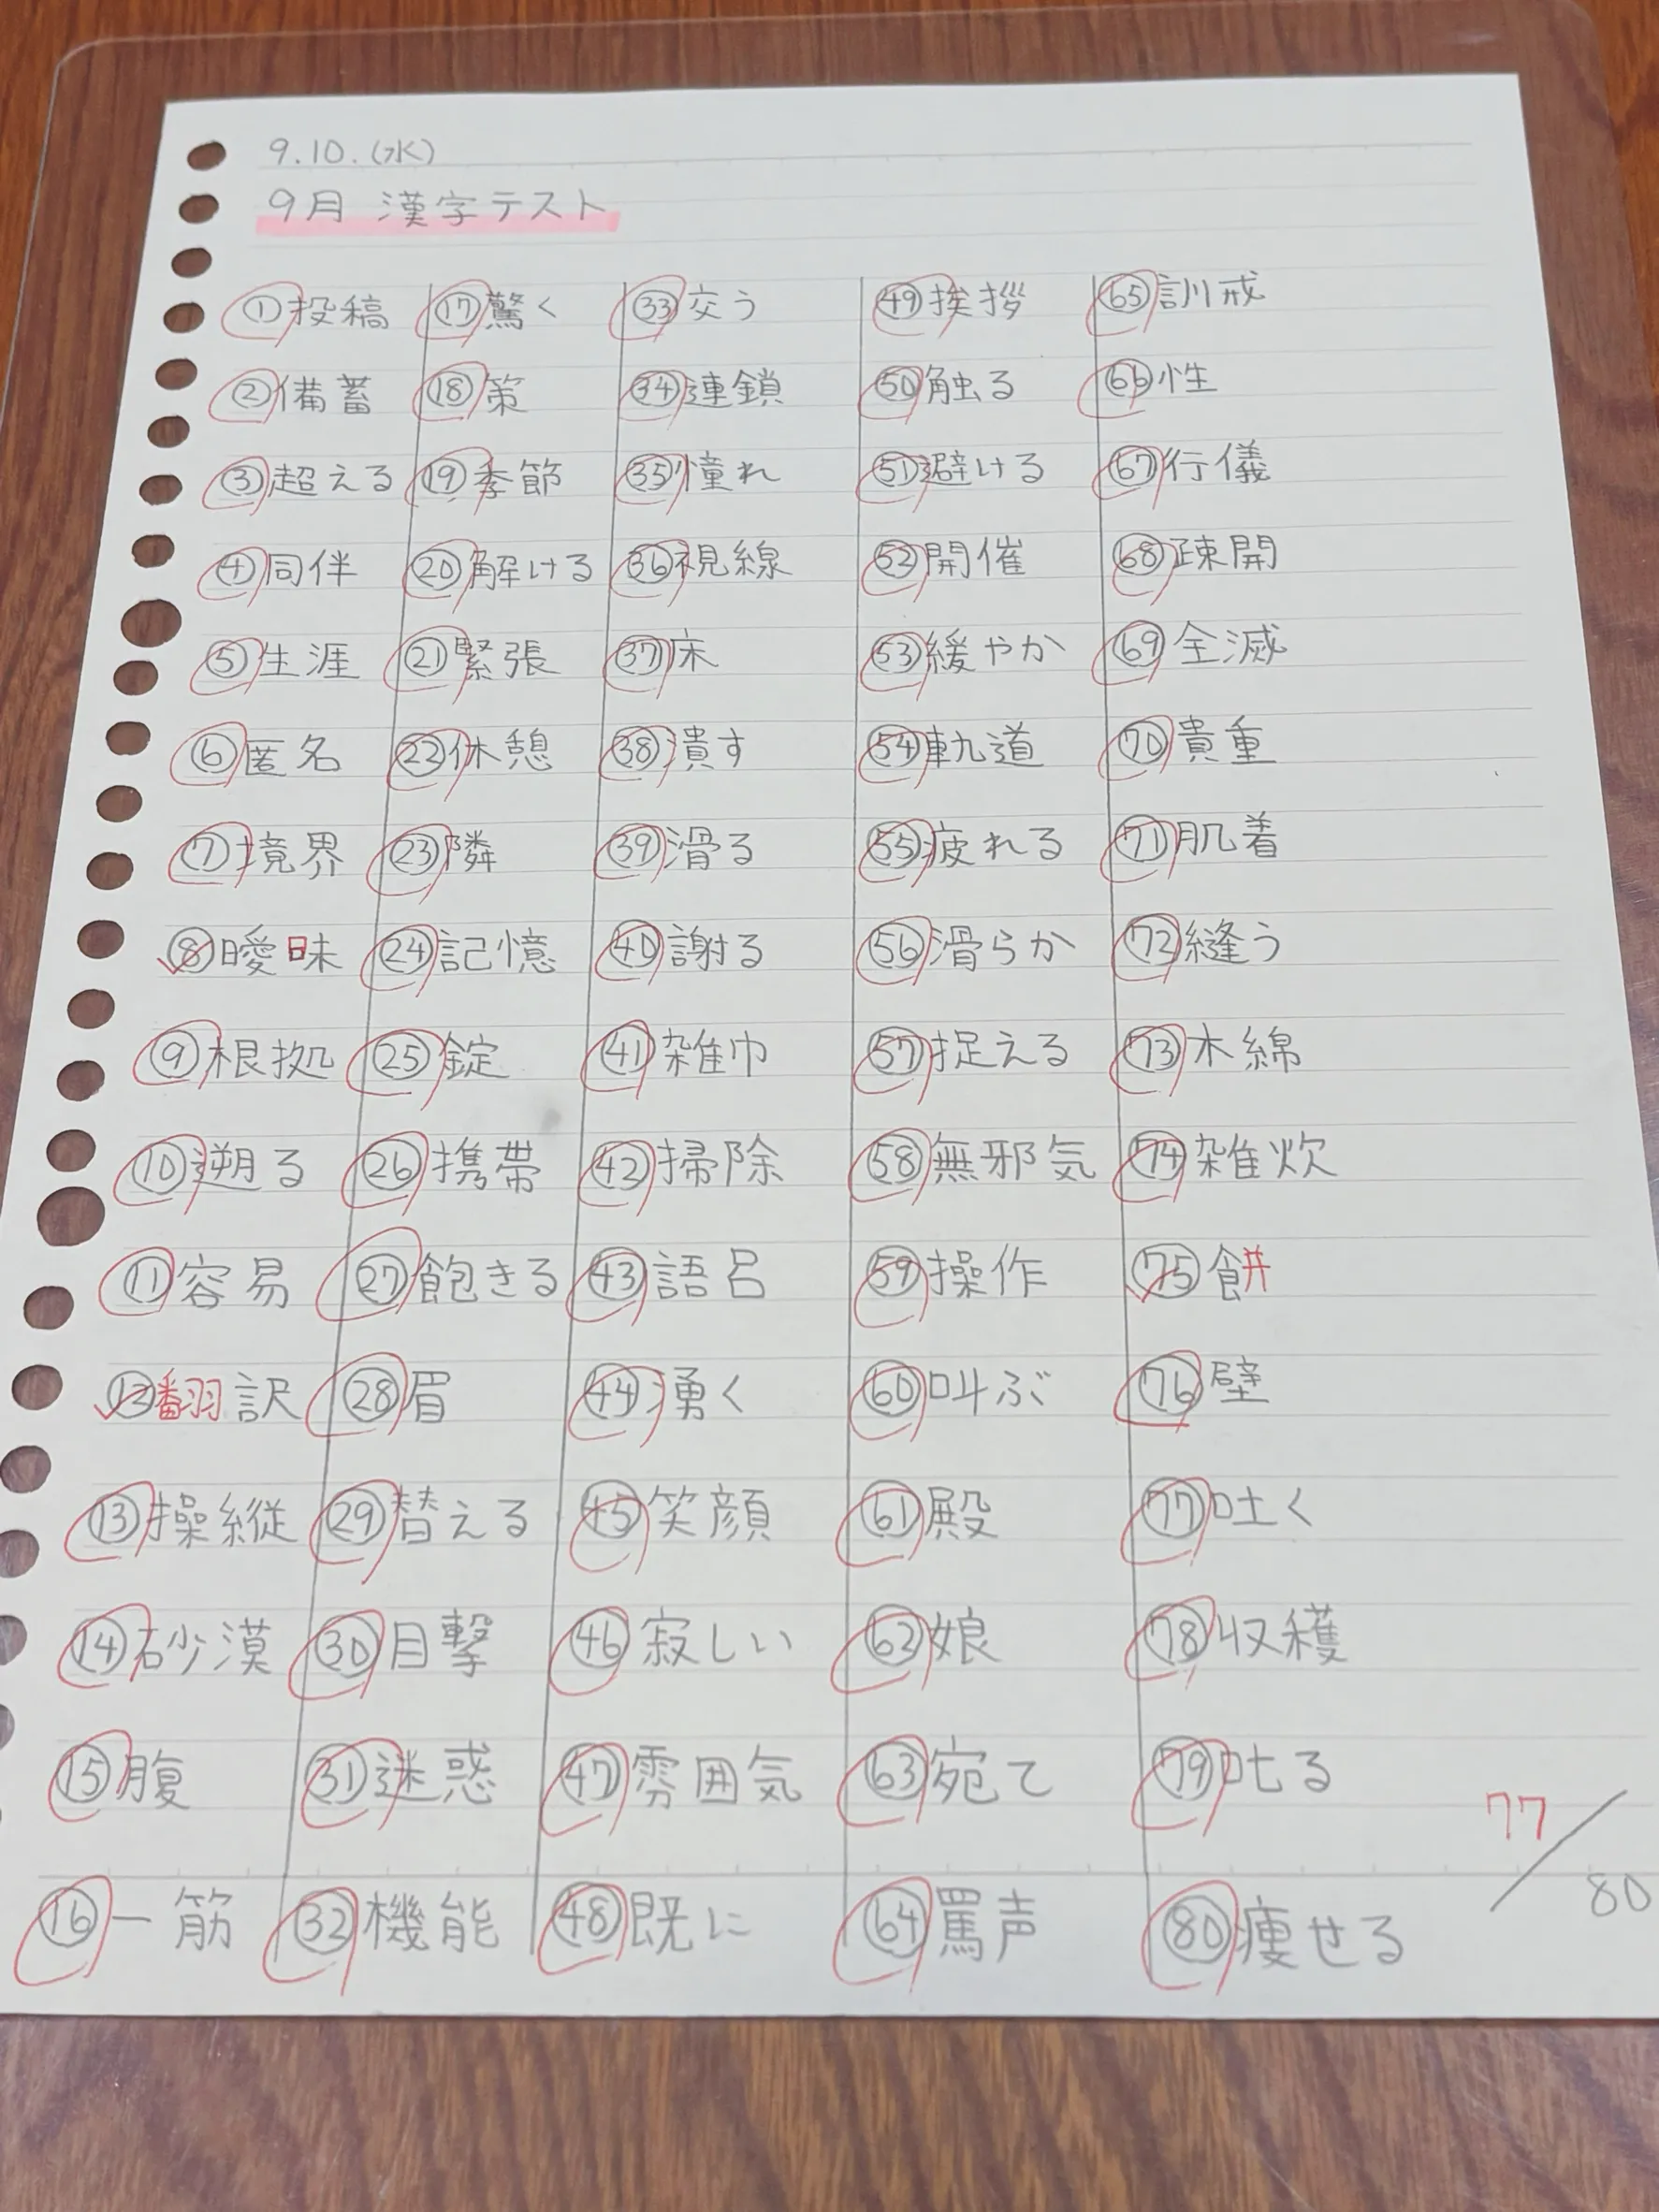 9.10.(水)
9月 漢字テスト
①投稿
②備蓄
③超える
④同伴
⑤生涯
⑥匿名
⑦境界
⑧曖昧
⑨根拠
⑩遡る
⑪容易
⑫翻訳
⑬操縦
⑭砂漠
⑮腹
⑯一筋
⑰驚く
⑱策
⑲季節
⑳解ける
㉑緊張
㉒休憩
㉓隣
㉔記憶
㉕錠
㉖携帯
㉗飽きる
㉘眉
㉙替える
㉚目撃
㉛迷惑
㉜機能
㉝交う
㉞連鎖
㉟憧れ
㊱視線
㊲床
㊳潰す
㊴滑る
㊵謝る
㊶雑巾
㊷掃除
㊸語呂
㊹湧く
㊺笑顔
㊻寂しい
㊼雰囲気
㊽既に
㊾挨拶
㊿触る
51避ける
52開催
53緩やか
54軌道
55疲れる
56滑らか
57捉える
58無邪気
59操作
60叫ぶ
61殿
62娘
63宛て
64罵声
65訓戒
66性
67行儀
68疎開
69全滅
70貴重
71肌着
72縫う
73木綿
74雑炊
75餅
76壁
77吐く
78収穫
79叱る
80痩せる
77/80